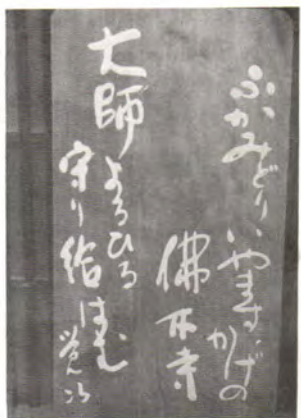 ふかみどりいやますかげの
佛木寺
大師よるひる
守り給はむ